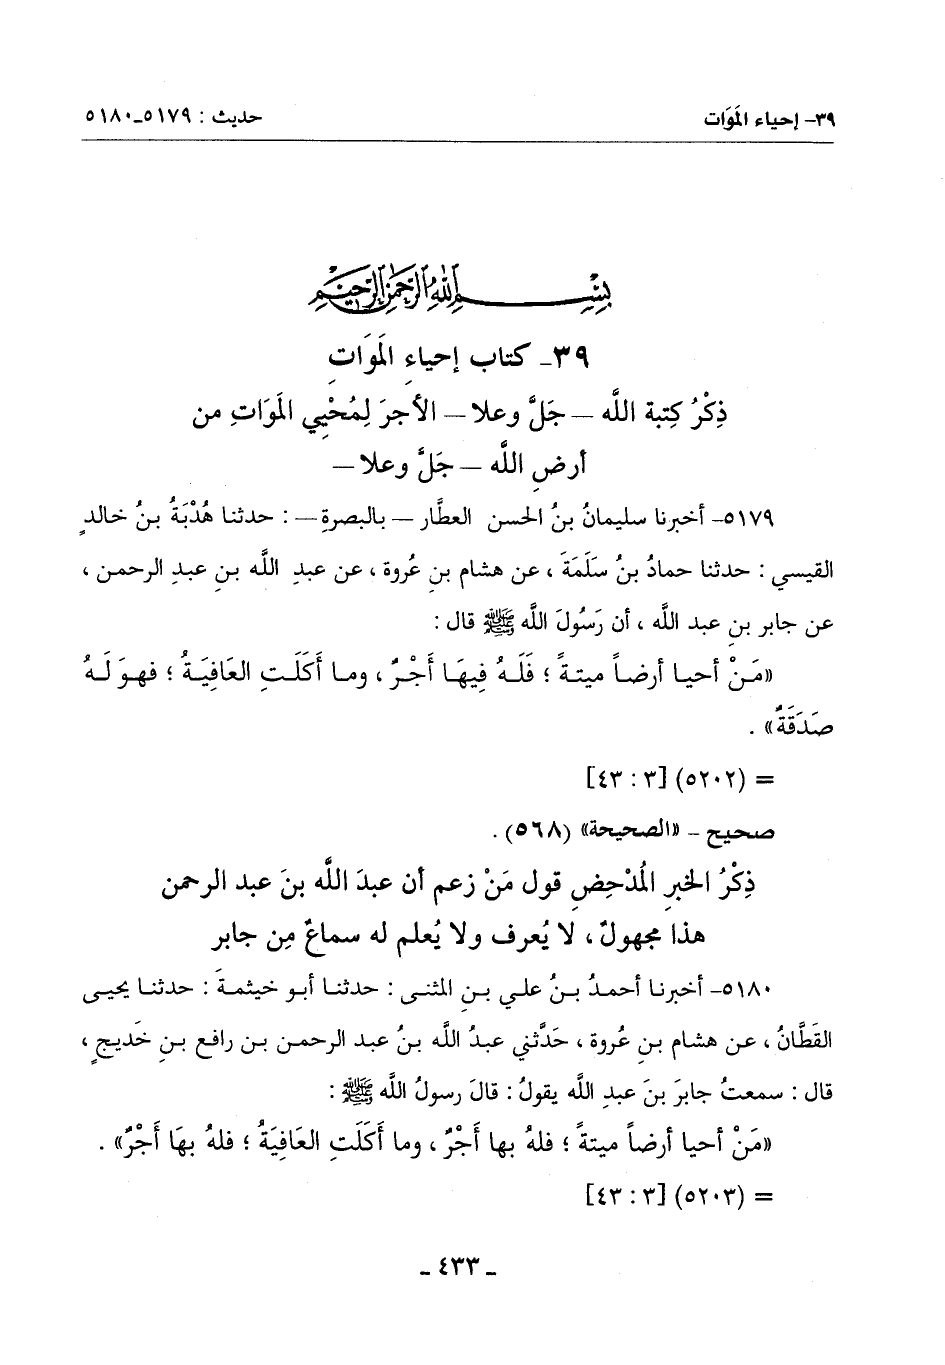 ٣٩- إحياء المَوَات حديث : ٥١٧٩-٥١٨٠
بِسْمِ اللهِ الرَّحْمَنِ الرَّحِيمِ
٣٩- كتاب إحياءِ المَوَاتِ
ذِكْرُ كِتبة اللَّه – جَلَّ وعلا – الأجرَ لِمُحْيِي المَوَاتِ من
أرضِ اللَّه – جَلَّ وعلا –
٥١٧٩- أخبرنا سليمانُ بنُ الحسن العطَّار – بالبصرةِ – : حدثنا هُدْبَةُ بنُ خالدٍ
القيسي : حدثنا حمادُ بنُ سَلَمَةَ ، عن هشام بنِ عُروة ، عن عبدِ اللَّه بنِ عبدِ الرحمن ،
عن جابر بنِ عبد اللَّه ، أن رَسُولَ اللَّه ﷺ قال :
«مَنْ أحيا أرضاً ميتةً ؛ فَلَهُ فِيهَا أَجْرٌ ، وما أَكَلَتِ العَافِيَةُ ؛ فهوَ لَهُ
صَدَقَةٌ» .
= (٥٢٠٢) [٣ : ٤٣]
صحيح – «الصحيحة» (٥٦٨) .
ذِكْرُ الخبرِ المُدْحِضِ قول مَنْ زعم أن عبدَ اللَّه بنَ عبد الرحمن
هذا مجهولٌ ، لا يُعرف ولا يُعلم له سماعٌ مِن جابر
٥١٨٠- أخبرنا أحمدُ بنُ علي بنِ المثنى : حدثنا أبو خيثمةَ : حدثنا يحيى
القَطَّانُ ، عن هشام بنِ عُروة ، حَدَّثني عبدُ اللَّه بنُ عبد الرحمن بن رافع بنِ خَديجٍ ،
قال : سمعتُ جابرَ بنَ عبدِ اللَّه يقولُ : قالَ رسولُ اللَّه ﷺ :
«مَنْ أحيا أرضاً ميتةً ؛ فلهُ بها أَجْرٌ ، وما أَكَلَتِ العَافِيَةُ ؛ فلهُ بهَا أَجْرٌ» .
= (٥٢٠٣) [٣ : ٤٣]
- ٤٣٣ -